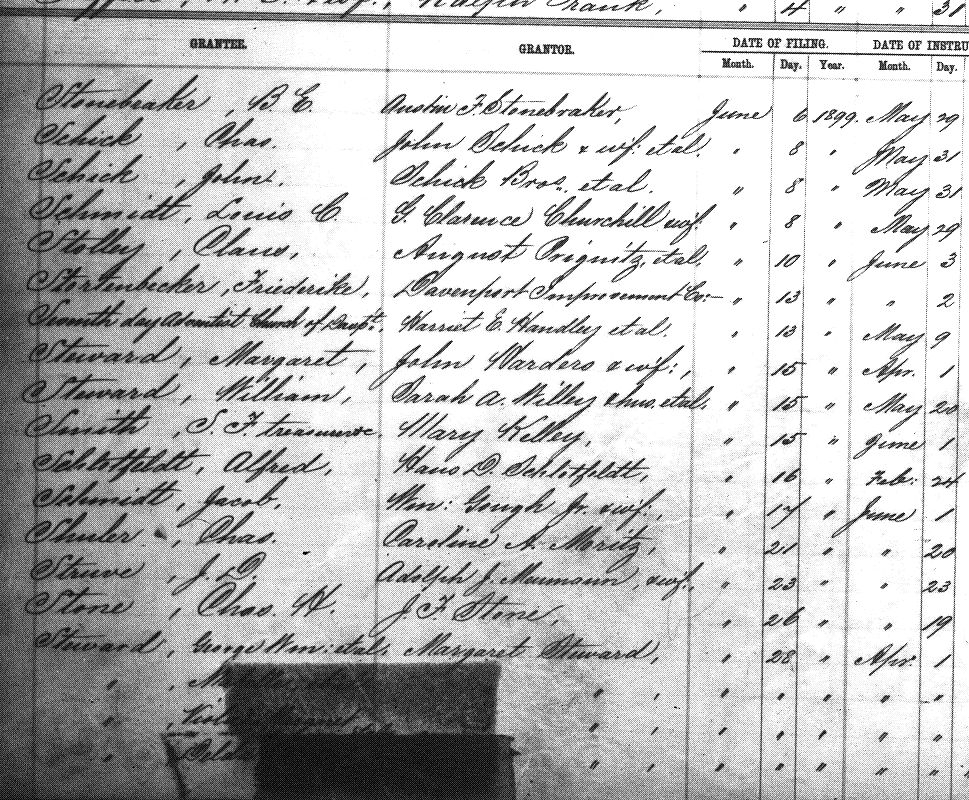 4 " " 31
GRANTEE. GRANTOR. DATE OF FILING. DATE OF INSTRU
Month. Day. Year. Month. Day.
Stonebraker, B. E. Austin F. Stonebraker, June 6 1899. May 29
Schick, Chas. John Schick & wf: et al. " 8 " May 31
Schick, John. Schick Bros. et al. " 8 " May 31
Schmidt, Louis C. G. Clarence Churchill wf. " 8 " May 29
Stolley, Claus, August Prignitz, et al, " 10 " June 3
Stortenbecker, Friederike, Davenport Improvement Co:— " 13 " " 2
Seventh day Adventist Church of Harriet E. Handley et al. " 13 " May 9
Steward, Margaret, John Harders & wf:, " 15 " Apr. 1
Steward, William, Sarah A. Willey & hus. et al. " 15 " May 20
Smith, S. F. treasurer. Mary Kelley, " 15 " June 1
Schlotfeldt, Alfred, Hans D. Schlotfeldt, " 16 " Feb: 24
Schmidt, Jacob, Wm: Gough Jr. & wf:, " 17 " June 1
Shuler, Chas. Caroline A. Moritz, " 21 " " 20
Struve, J. D. Adolph J. Naumann, & wf., " 23 " " 23
Stone, Chas. H. J. F. Stone, " 26 " " 19
Steward, George Wm: et al, Margaret Steward, " 28 " Apr. 1
" , " , " " " " "
" , " , " " " " "
" , " , " " " " "